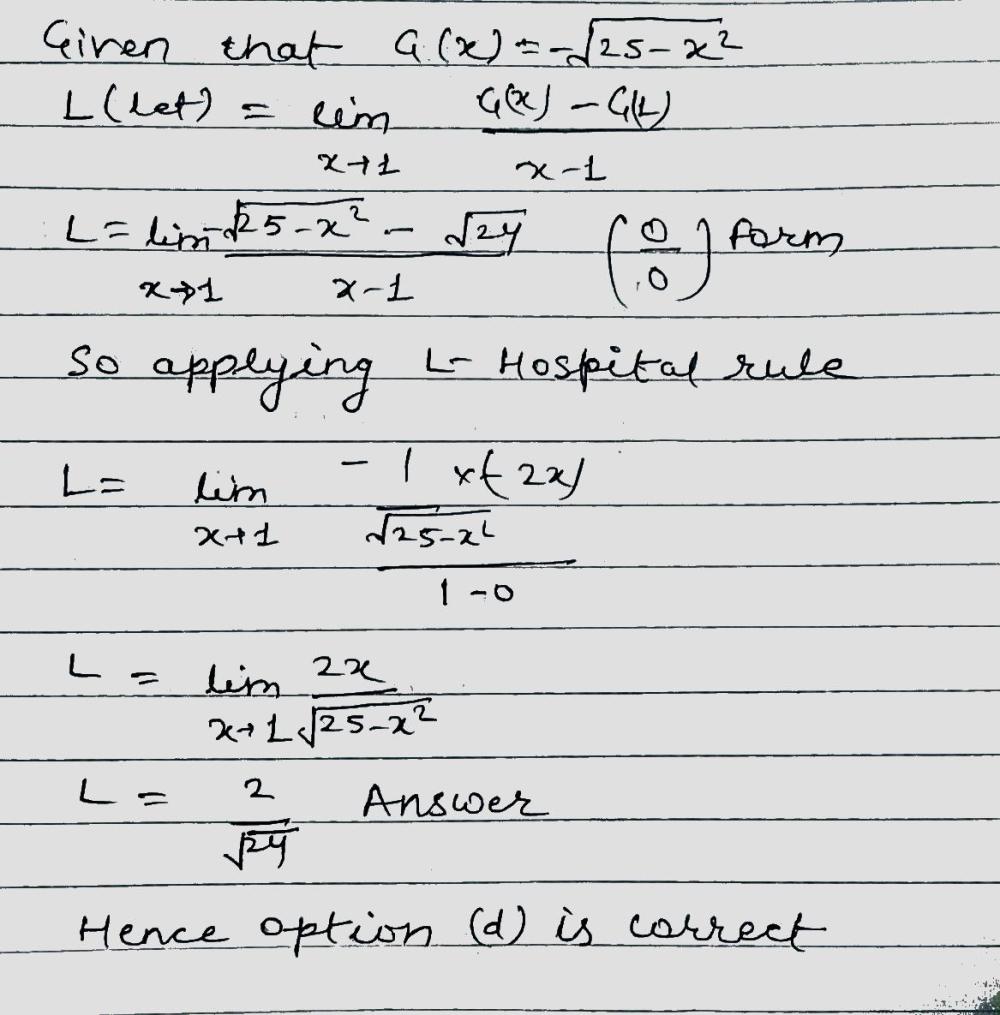 Given that G(x) = -√25-x²
L (Let) = lim G(x) - G(1)
x→1 x-1
L = lim -√25-x² - √24 (0/0) form
x→1 x-1
So applying L- Hospital rule
L = lim -1 x(-2x)
x→1 √25-x²
1-0
L = lim 2x
x→1 √25-x²
L = 2 Answer
√24
Hence option (d) is correct